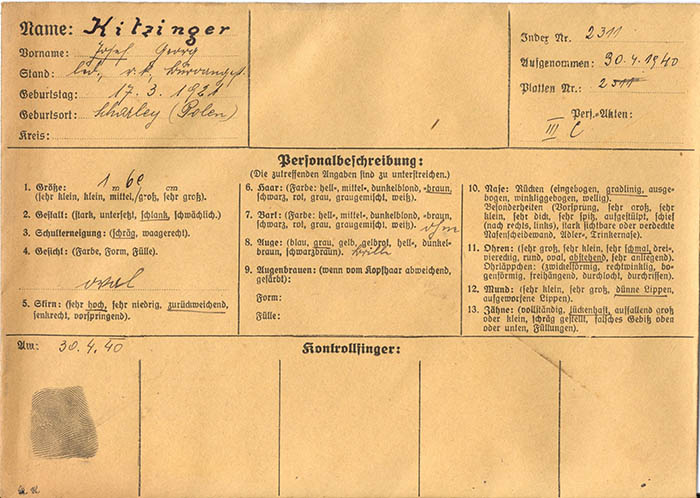 Name: Kitzinger
Vorname: Josef Georg
Stand: led., r.k., Büroangest.
Geburtstag: 17. 3. 1921
Geburtsort: Scharley (Polen)
Kreis:
Index Nr. 2311
Aufgenommen: 30.4.1940
Platten Nr.: 2311
Pers.-Akten:
III C
Personalbeschreibung:
(Die zutreffenden Angaben sind zu unterstreichen.)
1. Größe: 1 m 60 cm
(sehr klein, klein, mittel, groß, sehr groß).
2. Gestalt: (stark, untersetzt, schlank, schwächlich).
3. Schulterneigung: (schräg, waagerecht).
4. Gesicht: (Farbe, Form, Fülle).
oval
5. Stirn: (sehr hoch, sehr niedrig, zurückweichend,
senkrecht, vorspringend).
6. Haar: (Farbe: hell-, mittel-, dunkelblond, -braun,
schwarz, rot, grau, graugemischt, weiß).
7. Bart: (Farbe: hell-, mittel-, dunkelblond, -braun,
schwarz, rot, grau, graugemischt, weiß).
8. Auge: (blau, grau, gelb, gelbrot, hell-, dunkel-
braun, schwarzbraun). Brille
9. Augenbrauen: (wenn vom Kopfhaar abweichend,
gefärbt):
Form:
Fülle:
10. Nase: Rücken (eingebogen, gradlinig, ausge-
bogen, winkliggebogen, wellig).
Besonderheiten (Vorsprung, sehr groß, sehr
klein, sehr dick, sehr spitz, aufgestülpt, schief
(nach rechts, links), stark sichtbare oder verdeckte
Nasenscheidewand, Adler-, Trinkernase).
11. Ohren: (sehr groß, sehr klein, sehr schmal, drei-
viereckig, rund, oval, abstehend, sehr anliegend).
Ohrläppchen: (zwickelförmig, rechtwinklig, bo-
genförmig, freihängend, durchlocht, durchrissen).
12. Mund: (sehr klein, sehr groß, dünne Lippen,
aufgeworfene Lippen).
13. Zähne: (vollständig, lückenhaft, auffallend groß
oder klein, schräg gestellt, falsches Gebiß oben
oder unten, Füllungen).
Am: 30.4.40
Kontrollfinger: